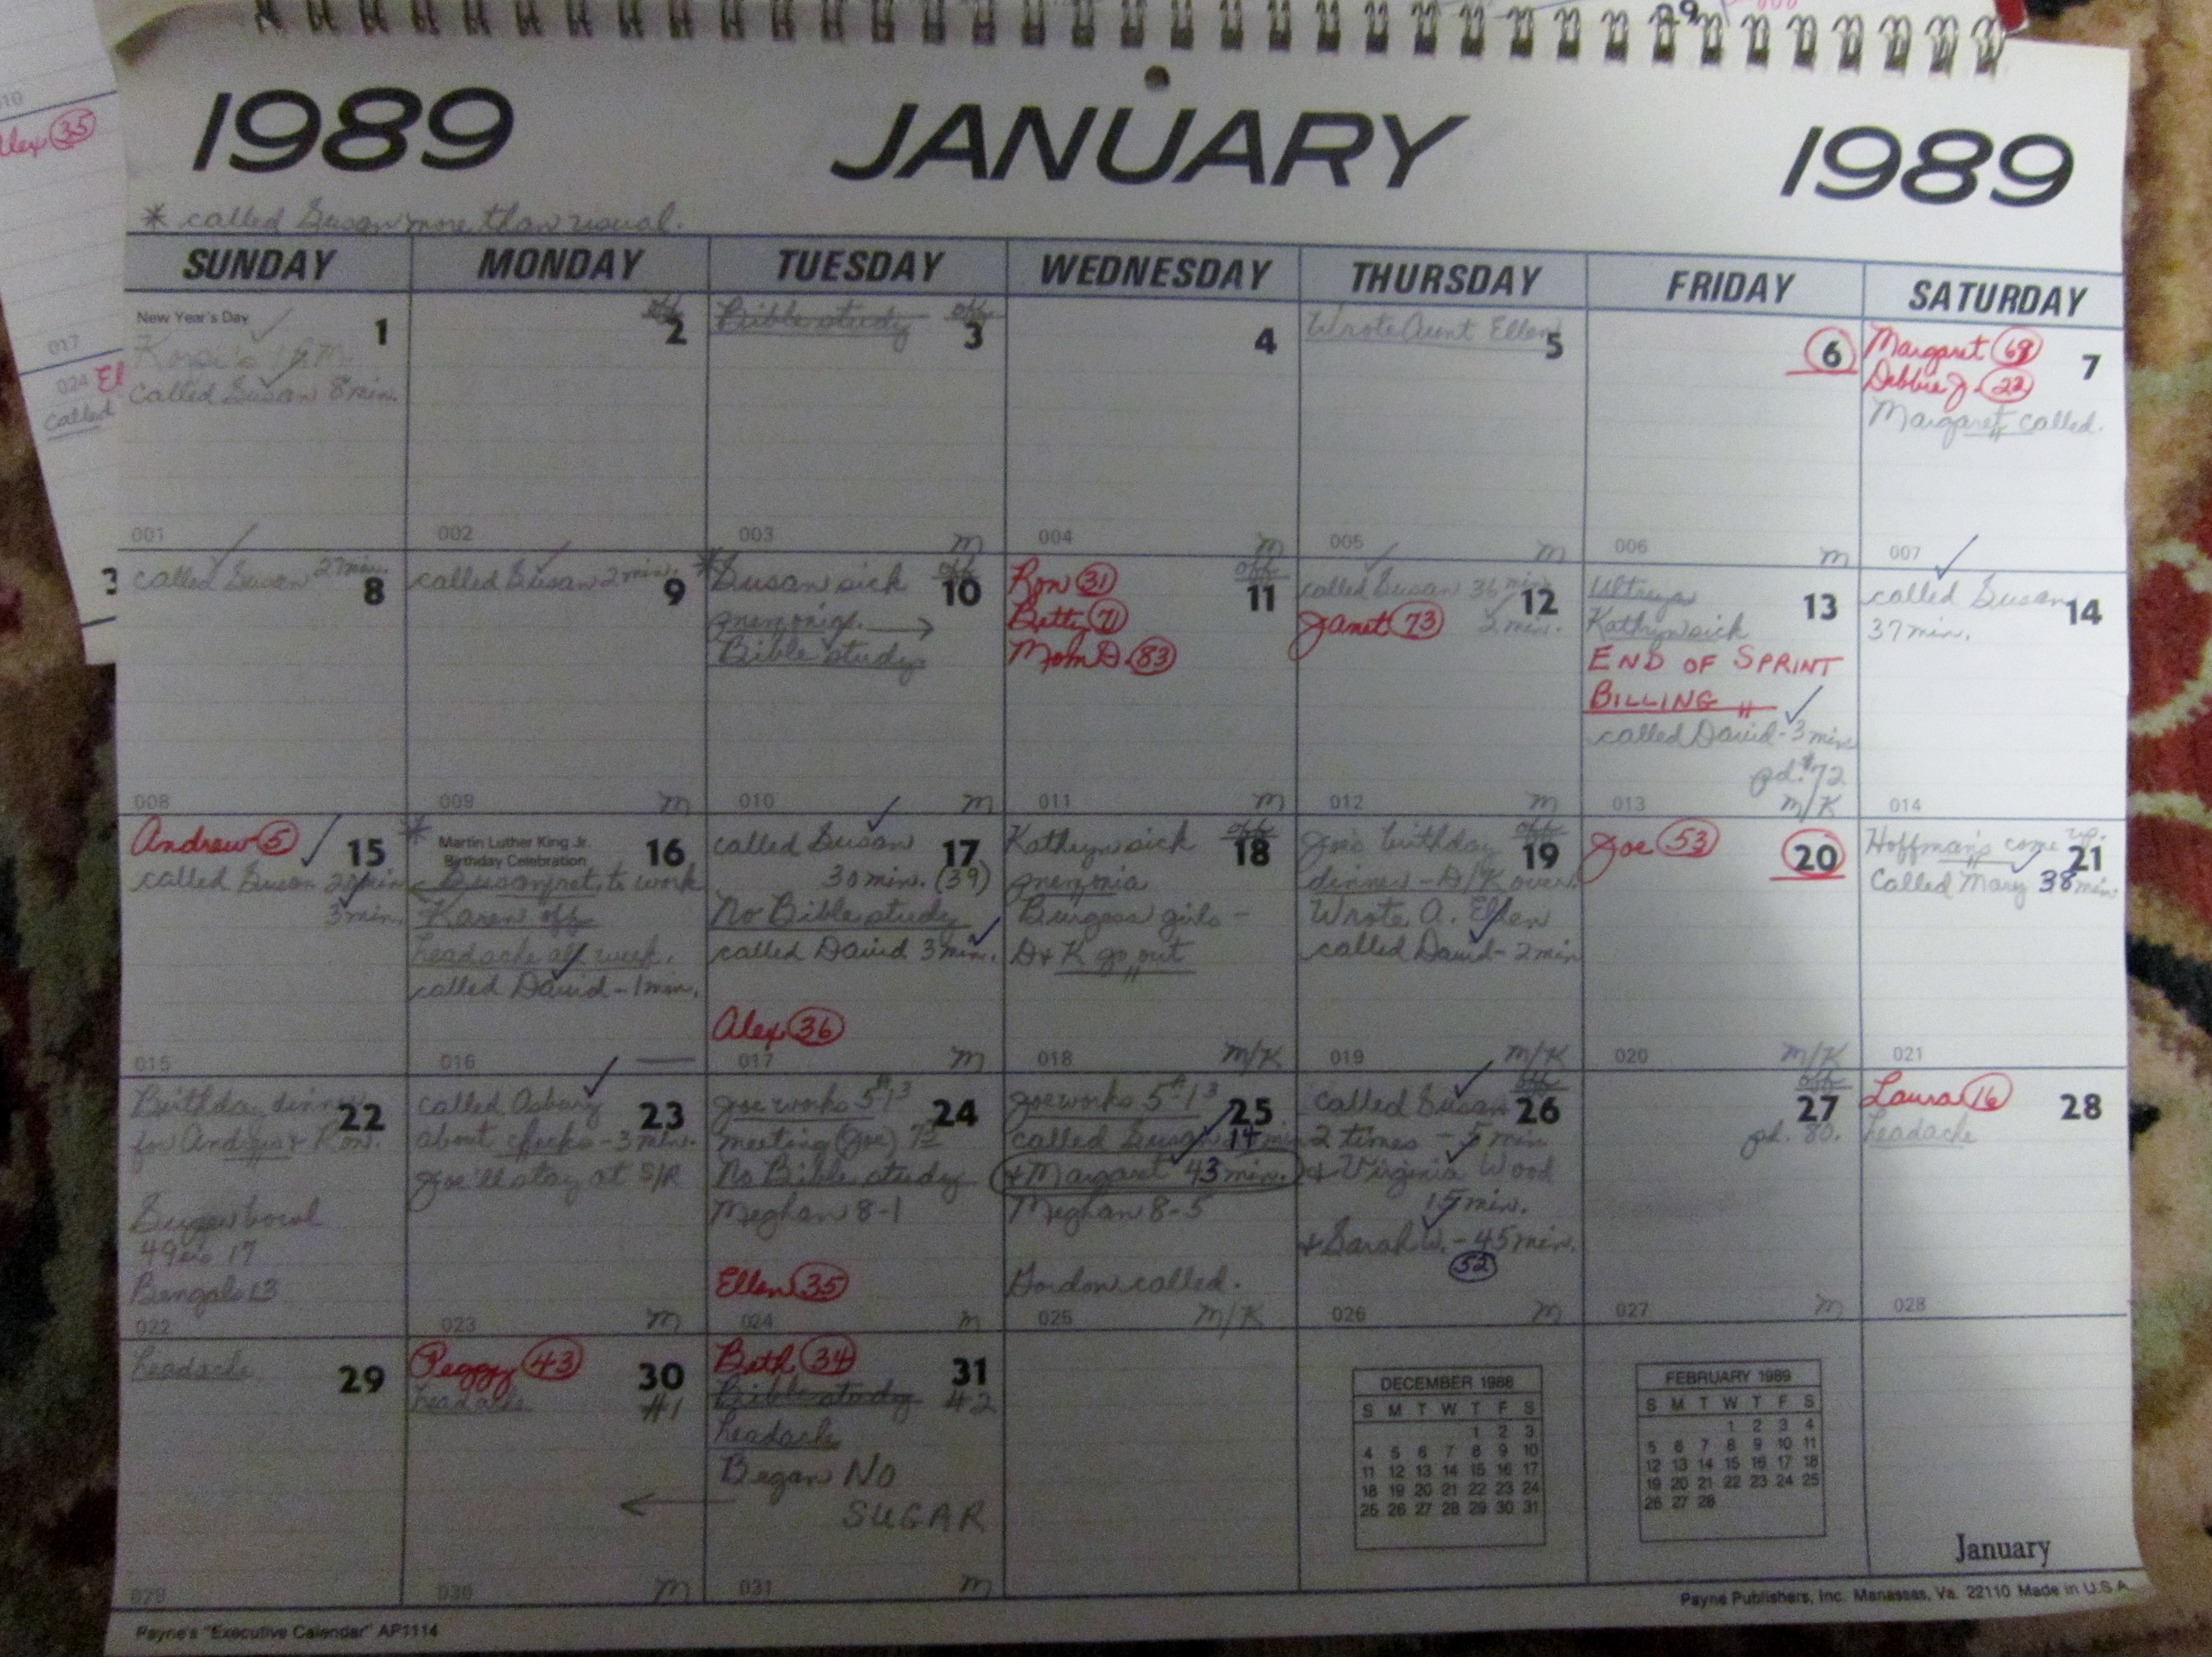 1989 JANUARY 1989
* called Susan more than usual.
SUNDAY MONDAY TUESDAY WEDNESDAY THURSDAY FRIDAY SATURDAY
New Year's Day
1
P.M.
Called Susan 8 min.
001
off
2
002
Bible study off
3
003 M
4
004 M
Wrote Aunt Ellen
5
005 M
6
006 M
Margaret 68
Debbie J. 22
7
Margaret called.
007
called Susan 27 min.
8
008
called Susan 2 min.
9
009 M
* Susan sick off
10
Bible study
010 M
Ron 31 off
Betty 71
11
Mom D. 83
011 M
called Susan 36 min.
12
Janet 73 2 min.
012 M
13
Kathryn sick
END OF SPRINT
BILLING
called David - 3 min
pd. $72
013 M/K
called Susan
14
37 min.
014
Andrew 5
15
called Susan 20 min
3 min.
015
* Martin Luther King Jr.
Birthday Celebration
16
Susan to work
Karen off
headache all week.
called David - 1 min.
016
called Susan
17
30 min. (39)
No Bible study
called David 3 min.
Alex 36
017 M
Kathryn sick off
18
Burgess girls -
D & K go out
018 M/K
Joe's birthday off
19
dinner - D/K over.
Wrote A. Ellen
called David - 2 min
019 M/K
Joe 53
20
020 M/K
Hoffman's come up.
21
Called Mary 38 min.
021
Birthday dinner
22
for Andrew & Ron.
49ers 17
Bengals 13
022
called Asbury
23
about checks - 3 min.
Joe'll stay at S/R
023 M
Joe works
24
meeting (Joe)
No Bible study
Meghan 8-1
Ellen 35
024 M
Joe works
25
called Susan 14 min
& Margaret 43 min.
Meghan 8-5
Gordon called.
025 M/K
called Susan off
26
2 times - 5 min.
& Virginia Wood
15 min.
& Sarah W. - 45 min.
52
026 M
off
27
pd. 80.
027 M
Laura 16
28
headache
028
headache
29
029
Peggy 43
30
headache #1
030 M
Beth 34
31
Bible study #2
headache
Began NO
SUGAR
031 M
DECEMBER 1988
S M T W T F S
1 2 3
4 5 6 7 8 9 10
11 12 13 14 15 16 17
18 19 20 21 22 23 24
25 26 27 28 29 30 31
FEBRUARY 1989
S M T W T F S
1 2 3 4
5 6 7 8 9 10 11
12 13 14 15 16 17 18
19 20 21 22 23 24 25
26 27 28
January
Payne Publishers, Inc. Manassas, Va. 22110 Made in U.S.A.
Payne's "Executive Calendar" AP1114
10
Alex 35
017
024 El
called
3
29